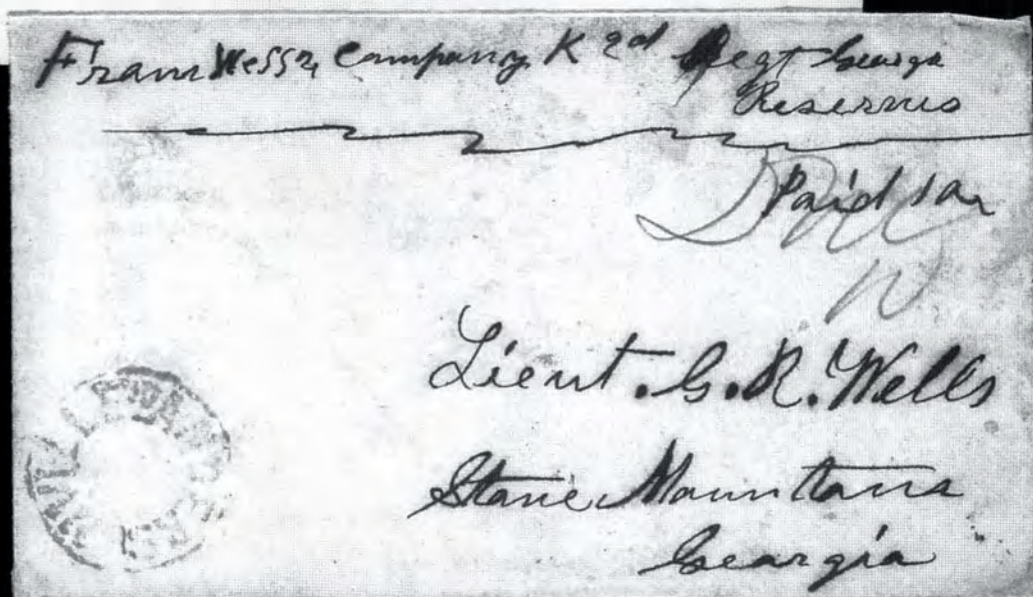 From Company K 2d Regt Georgia
Reserves
Paid 10
Due
10
Lieut. G. R. Wells
Stone Mountain
Georgia